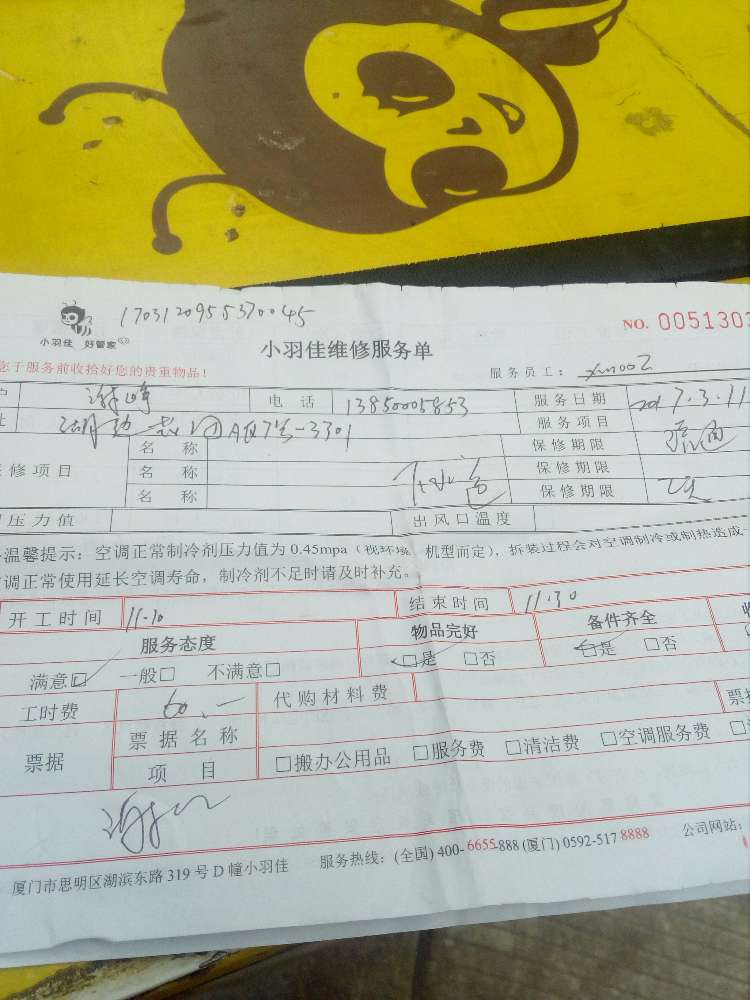 170312095370045
小羽佳 好管家
NO. 0051303
小羽佳维修服务单
您于服务前收拾好您的贵重物品！
服务员工：xm002
电话 13850005853 服务日期 2017.3.11
A区7号-3301 服务项目 疏通
名称 保修期限
修项目 名称 保修期限
名称 保修期限
压力值 出风口温度
温馨提示：空调正常制冷剂压力值为0.45mpa（视环境、机型而定），拆装过程会对空调制冷或制热造成
调正常使用延长空调寿命，制冷剂不足时请及时补充。
开工时间 11.10 结束时间 11.30
服务态度 物品完好 备件齐全
满意☑ 一般□ 不满意□ ☑是 □否 ☑是 □否
工时费 60.— 代购材料费
票据 票据名称
项目 □搬办公用品 □服务费 □清洁费 □空调服务费
厦门市思明区湖滨东路319号D幢小羽佳 服务热线：(全国) 400-6655-888 (厦门) 0592-517 8888 公司网站：